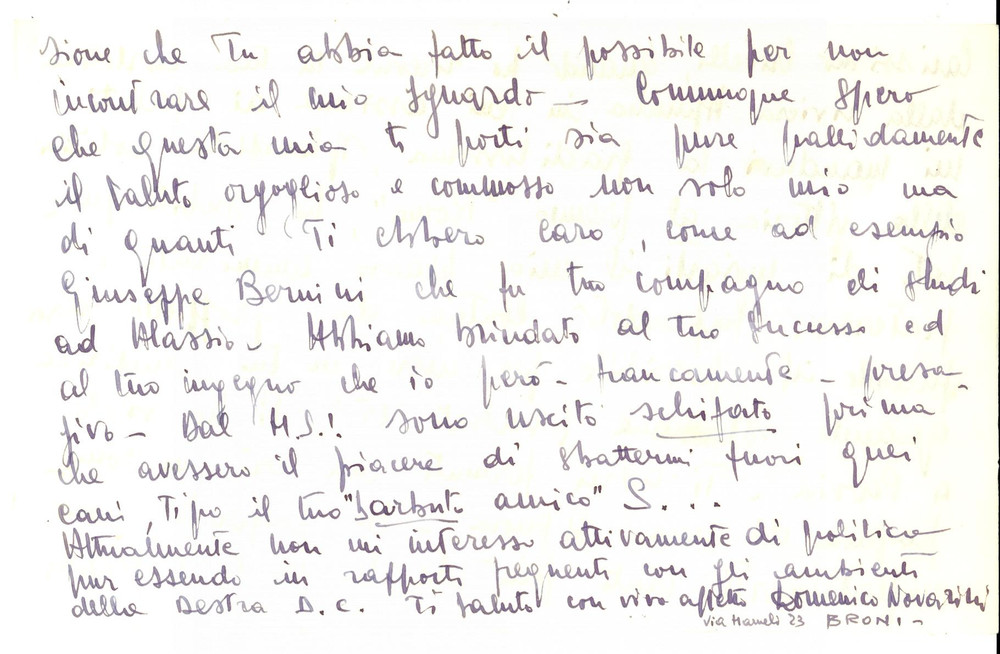 sione che Tu abbia fatto il possibile per non
incontrare il mio sguardo – Comunque spero
che questa mia ti porti sia pure pallidamente
il saluto orgoglioso e commosso non solo mio ma
di quanti Ti ebbero caro, come ad esempio
Giuseppe Bernini che fu tuo compagno di studi
ad Alassio – Abbiamo brindato al tuo successo ed
al tuo ingegno che io però – francamente – presa-
givo – Dal M.S.I. sono uscito schifato prima
che avessero il piacere di sbattermi fuori quei
cani, Tipo il tuo "barbuto amico" S. . .
Attualmente non mi interesso attivamente di politica
pur essendo in rapporti frequenti con gli ambienti
della Destra D.C. Ti saluto con vivo affetto Domenico Novarini
Via Mameli 23 BRONI –